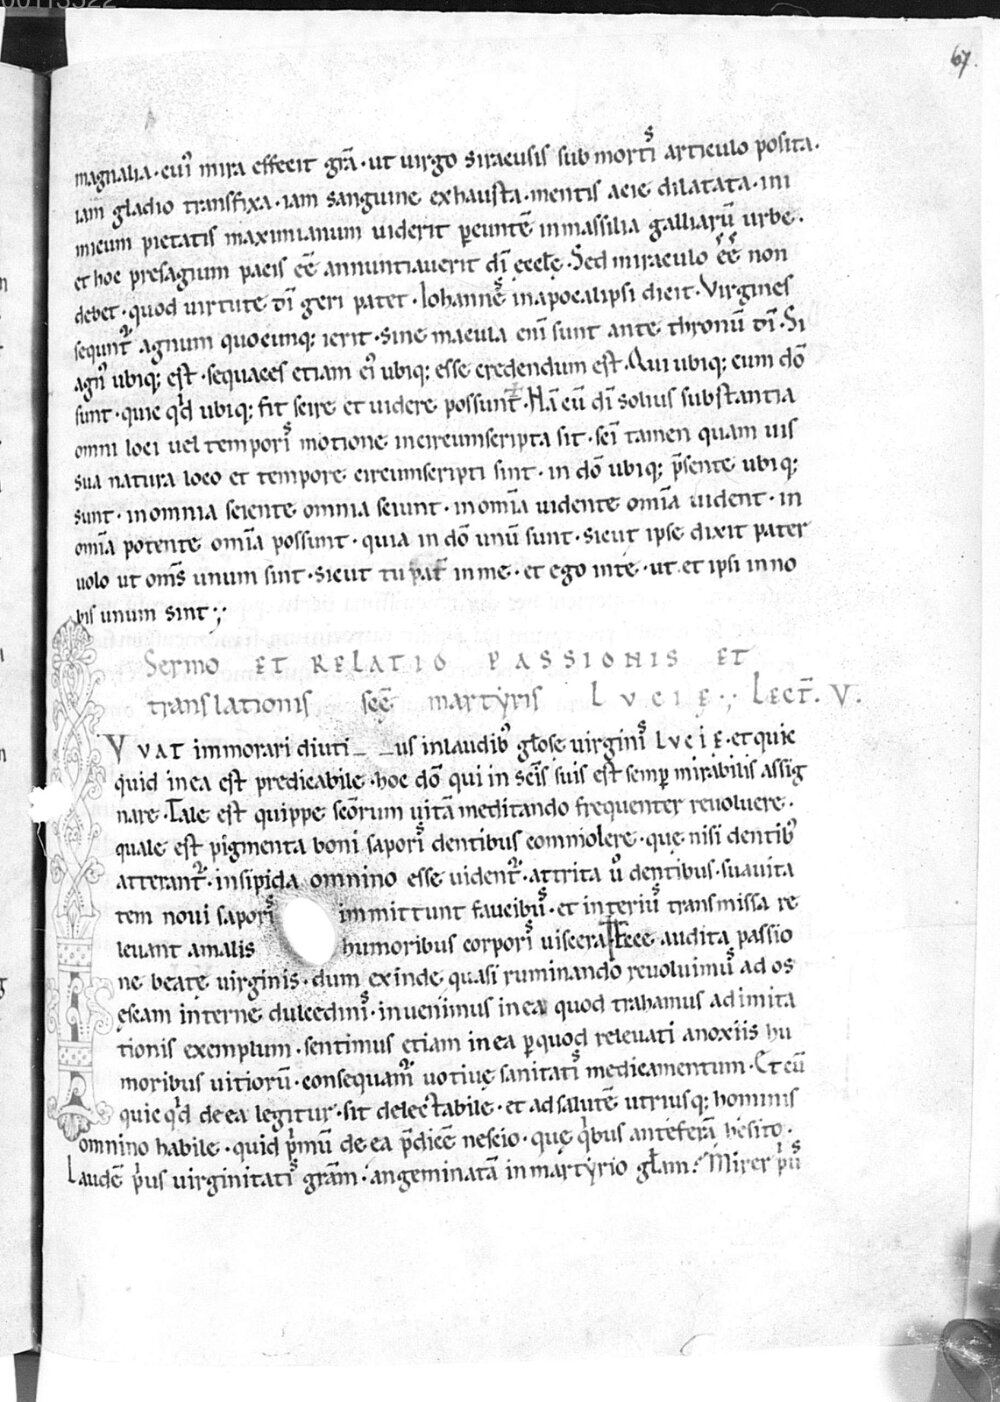 67.
magnalia· eiꝰ mira effecit gr̄a· ut uirgo siracusis sub mortis articulo posita·
iam gladio transfixa· iam sanguine exhausta· mentis acie dilatata· ini
micum pietatis maximianum uiderit ꝑeuntē in massilia galliarū urbe·
et hoc presagium pacis eē annuntiauerit dī ęcclę· Sed miraculo eē non
debet· quod uirtute dī geri patet· Iohannes in apocalipsi dicit· Virgines
sequnt᷑ agnum quocunq; ierit· sine macula enī sunt ante thronū dī· Si
agnꝰ ubiq; est· sequaces etiam eiꝰ ubiq; esse credendum est· Qui ubiq; cum dō
sunt· quic qd ubiq; fit scire et uidere possunt· Nā cū dī solius substantia
omni loci uel temporis motione incircumscripta sit· scī tamen quam uis
sua natura loco et tempore circumscripti sint· in dō ubiq; p̄sente ubiq;
sunt· in omnia sciente omnia sciunt· in omīa uidente omīa uident· in
omīa potente omīa possunt· quia in dō unū sunt· sicut ipse dixit pater
uolo ut om̄s unum sint· sicut tu pat̄ in me· et ego in te· ut et ipsi in no
bis unum sint·;
Sermo ET RELATIO PASSIONIS ET
translationis scē martyris LVCIE·; LECT̄. V.
VVAT immorari diuti us in laudibꝰ gl̄ose uirginis LVCIE· et quic
quid in ea est predicabile· hoc dō qui in scīs suis est semꝑ mirabilis assig
nare· Tale est quippe scōrum uitā meditando frequenter reuoluere·
quale est pigmenta boni saporis dentibus commolere· que nisi dentibꝰ
atterant᷑· insipida omnino esse uident᷑· attrita u̅ dentibus· suauita
tem noui saporis immittunt faucibus· et interius transmissa re
leuant a malis humoribus corporis uiscera· Ecce audita passio
ne beatę uirginis· dum exinde quasi ruminando reuoluimus ad os
ęscam internę dulcedinis· inuenimus in ea quod trahamus ad imita
tionis exemplum· sentimus etiam in ea ꝑ quod releuati a noxiis hu
moribus uitiorū· consequamur uotiuę sanitatis medicamentum· Et cū
quic qd de ea legitur· sit delectabile· et ad salutē utriusq; hominis
omnino habile· quid p̄mū de ea p̄dicē nescio· que qbus anteferā hesito·
Laudē p̄us uirginitatis gr̄am· an geminatā in martyrio gl̄am? Mirer p̄us